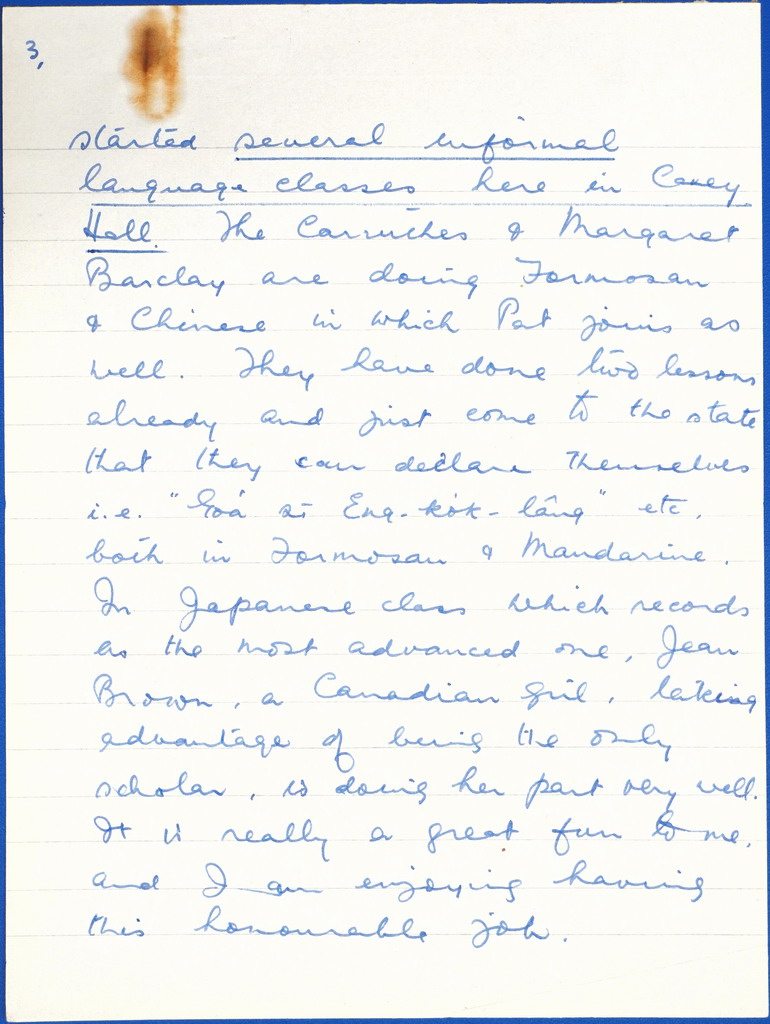 3,
started several informal
language classes here in Carey
Hall. The Carruthes & Margaret
Barclay are doing Formosan
& Chinese in which Pat joins as
well. They have done two lessons
already and just come to the state
that they can declare themselves
i.e. "Goá sī Eng-kok-lâng" etc,
both in Formosan & Mandarine.
In Japanese class which records
as the most advanced one, Jean
Brown, a Canadian girl, taking
advantage of being the only
scholar, is doing her part very well.
It is really a great fun to me,
and I am enjoying having
this honourable job.